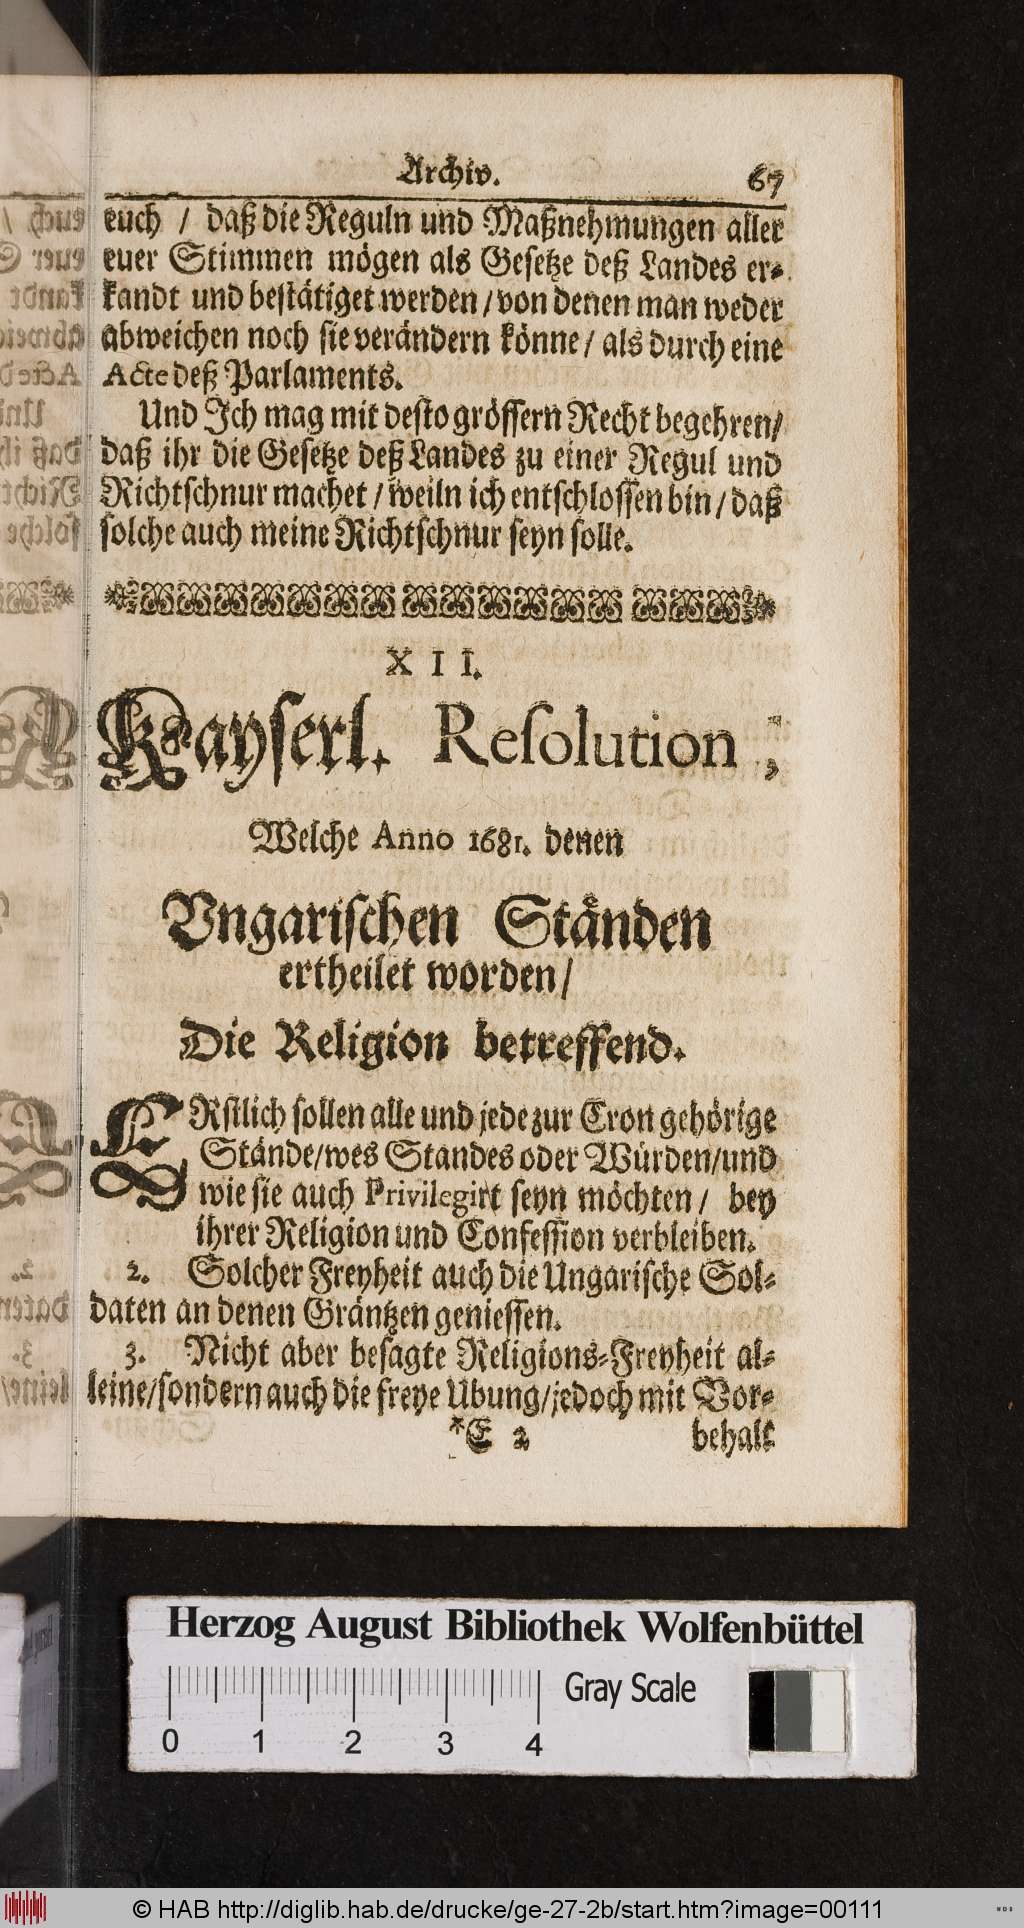 Archiv. 67
euch / daß die Reguln und Maßnehmungen aller
euer Stimmen mögen als Gesetze deß Landes er-
kandt und bestätiget werden / von denen man weder
abweichen noch sie verändern könne / als durch eine
Acte deß Parlaments.
Und Ich mag mit desto grössern Recht begehren /
daß ihr die Gesetze deß Landes zu einer Regul und
Richtschnur machet / weiln ich entschlossen bin / daß
solche auch meine Richtschnur seyn solle.
XII.
Kayserl. Resolution,
Welche Anno 1681. denen
Vngarischen Ständen
ertheilet worden /
Die Religion betreffend.
ERstlich sollen alle und jede zur Cron gehörige
Stände / wes Standes oder Würden / und
wie sie auch Privilegirt seyn möchten / bey
ihrer Religion und Confession verbleiben.
2. Solcher Freyheit auch die Ungarische Sol-
daten an denen Gräntzen geniessen.
3. Nicht aber besagte Religions-Freyheit al-
leine / sondern auch die freye Ubung / jedoch mit Vor-
*E 2 behalt
Herzog August Bibliothek Wolfenbüttel
Gray Scale
0 1 2 3 4
© HAB http://diglib.hab.de/drucke/ge-27-2b/start.htm?image=00111